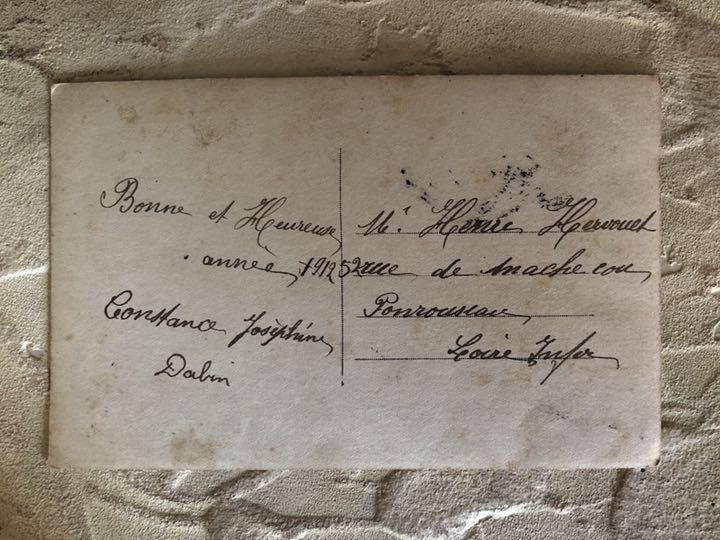 Bonne et Heureuse
année 1912
Constance Josèphine
Dabin
Mr Henri Hervouet
52 rue de Machecou
Ponrouseau
Loire Infer